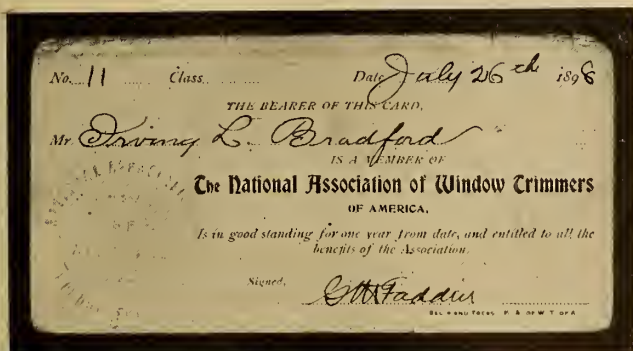 No. 11 Class Date July 26th 1898
THE BEARER OF THIS CARD,
Mr. Irving L. Bradford
IS A MEMBER OF
The National Association of Window Trimmers
OF AMERICA,
Is in good standing for one year from date, and entitled to all the
benefits of the Association.
Signed,